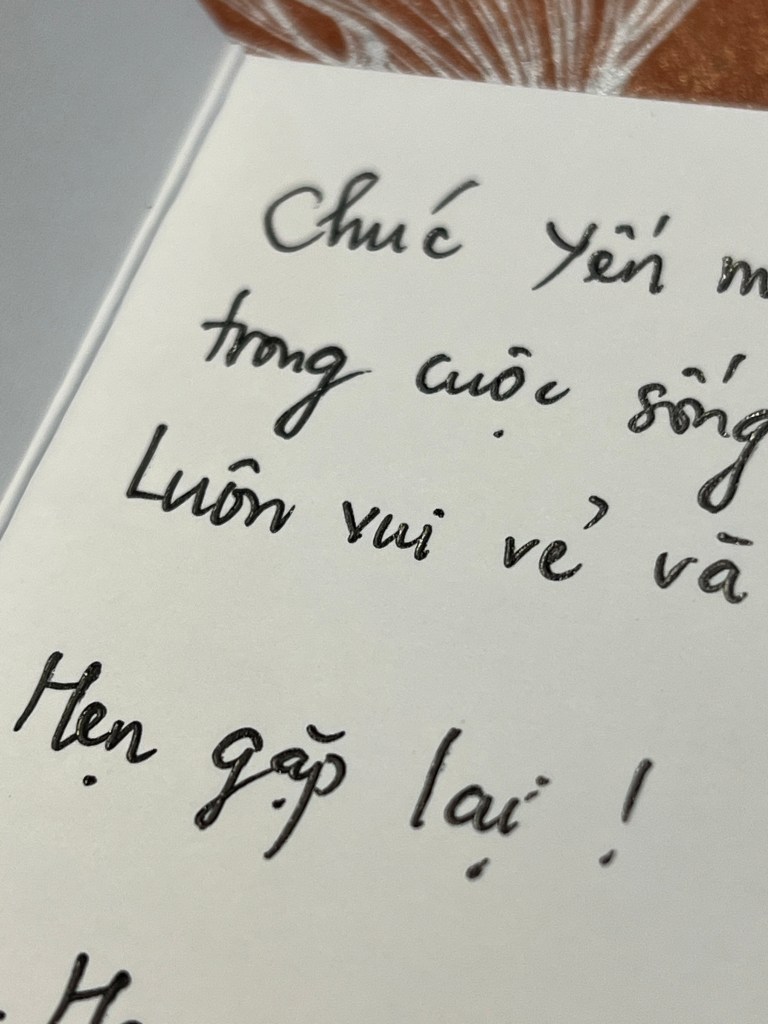 Chúc Yến
trong cuộc sống
Luôn vui vẻ và
Hẹn gặp lại !